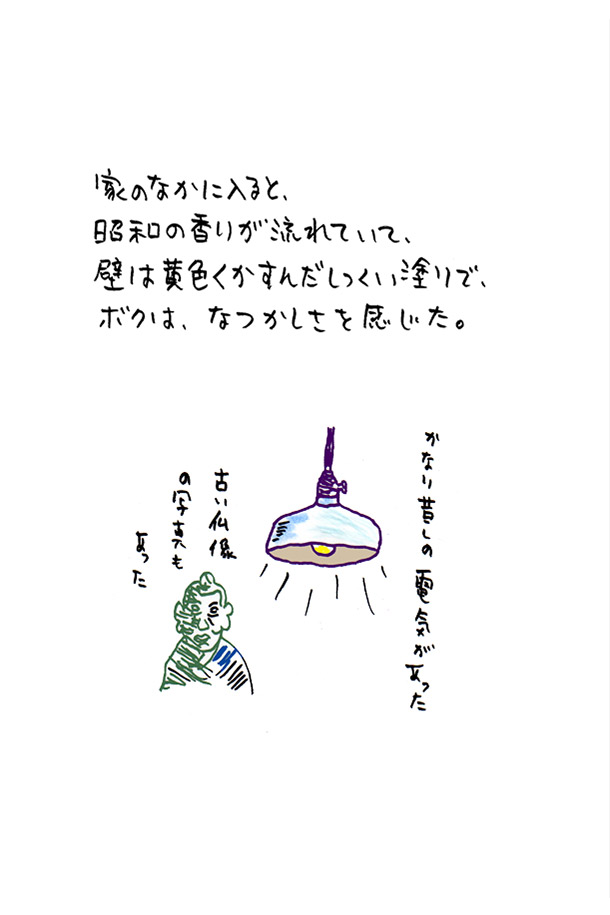 家のなかに入ると、
昭和の香りが流れていて、
壁は黄色くかすんだしっくい塗りで、
ボクは、なつかしさを感じた。
かなり昔しの電気があった
古い仏像
の写真も
あった